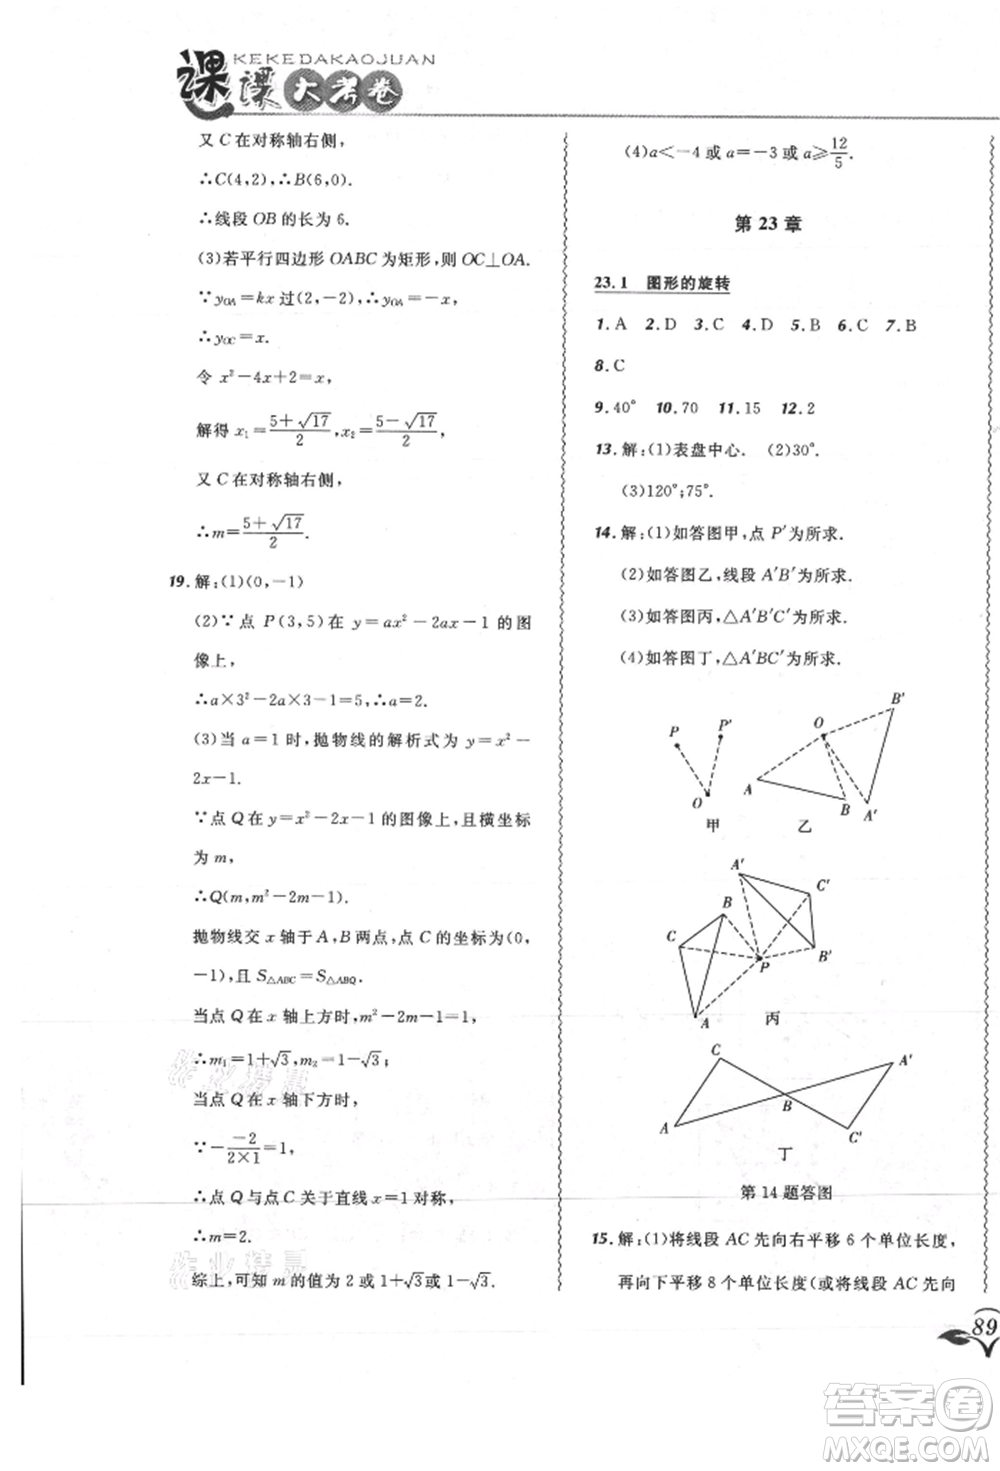 课课大考卷
KEKEDAKAOJUAN
又 C 在对称轴右侧,
∴C(4,2),∴B(6,0).
∴线段 OB 的长为 6.
(3)若平行四边形 OABC 为矩形,则 OC⊥OA.
∵y_{OA}=kx 过(2,-2),∴y_{OA}=-x,
∴y_{OC}=x.
令 x²-4x+2=x,
解得 x₁=\frac{5+√17}{2},x₂=\frac{5-√17}{2},
又 C 在对称轴右侧,
∴m=\frac{5+√17}{2}.
19.解:(1)(0,-1)
(2)∵点 P(3,5)在 y=ax²-2ax-1 的图
像上,
∴a×3²-2a×3-1=5,∴a=2.
(3)当 a=1 时,抛物线的解析式为 y=x²-
2x-1.
∵点 Q 在 y=x²-2x-1 的图像上,且横坐标
为 m,
∴Q(m,m²-2m-1).
抛物线交 x 轴于 A,B 两点,点 C 的坐标为(0,
-1),且 S_{△ABC}=S_{△ABQ}.
当点 Q 在 x 轴上方时,m²-2m-1=1,
∴m₁=1+√3,m₂=1-√3;
当点 Q 在 x 轴下方时,
∵-\frac{-2}{2×1}=1,
∴点 Q 与点 C 关于直线 x=1 对称,
∴m=2.
综上,可知 m 的值为 2 或 1+√3或 1-√3.
(4)a<-4 或 a=-3 或 a≥\frac{12}{5}.
第 23 章
23.1 图形的旋转
1.A 2.D 3.C 4.D 5.B 6.C 7.B
8.C
9.40° 10.70 11.15 12.2
13.解:(1)表盘中心. (2)30°.
(3)120°;75°.
14.解:(1)如答图甲,点 P′为所求.
(2)如答图乙,线段 A′B′为所求.
(3)如答图丙,△A′B′C′为所求.
(4)如答图丁,△A′BC′为所求.
P P′ O
甲
O B′ A B A′
乙
A′ C′ B C B′ P A
丙
C A′ B A C′
丁
第 14 题答图
15.解:(1)将线段 AC 先向右平移 6 个单位长度,
再向下平移 8 个单位长度(或将线段 AC 先向
89
答案卷
MXQE.COM